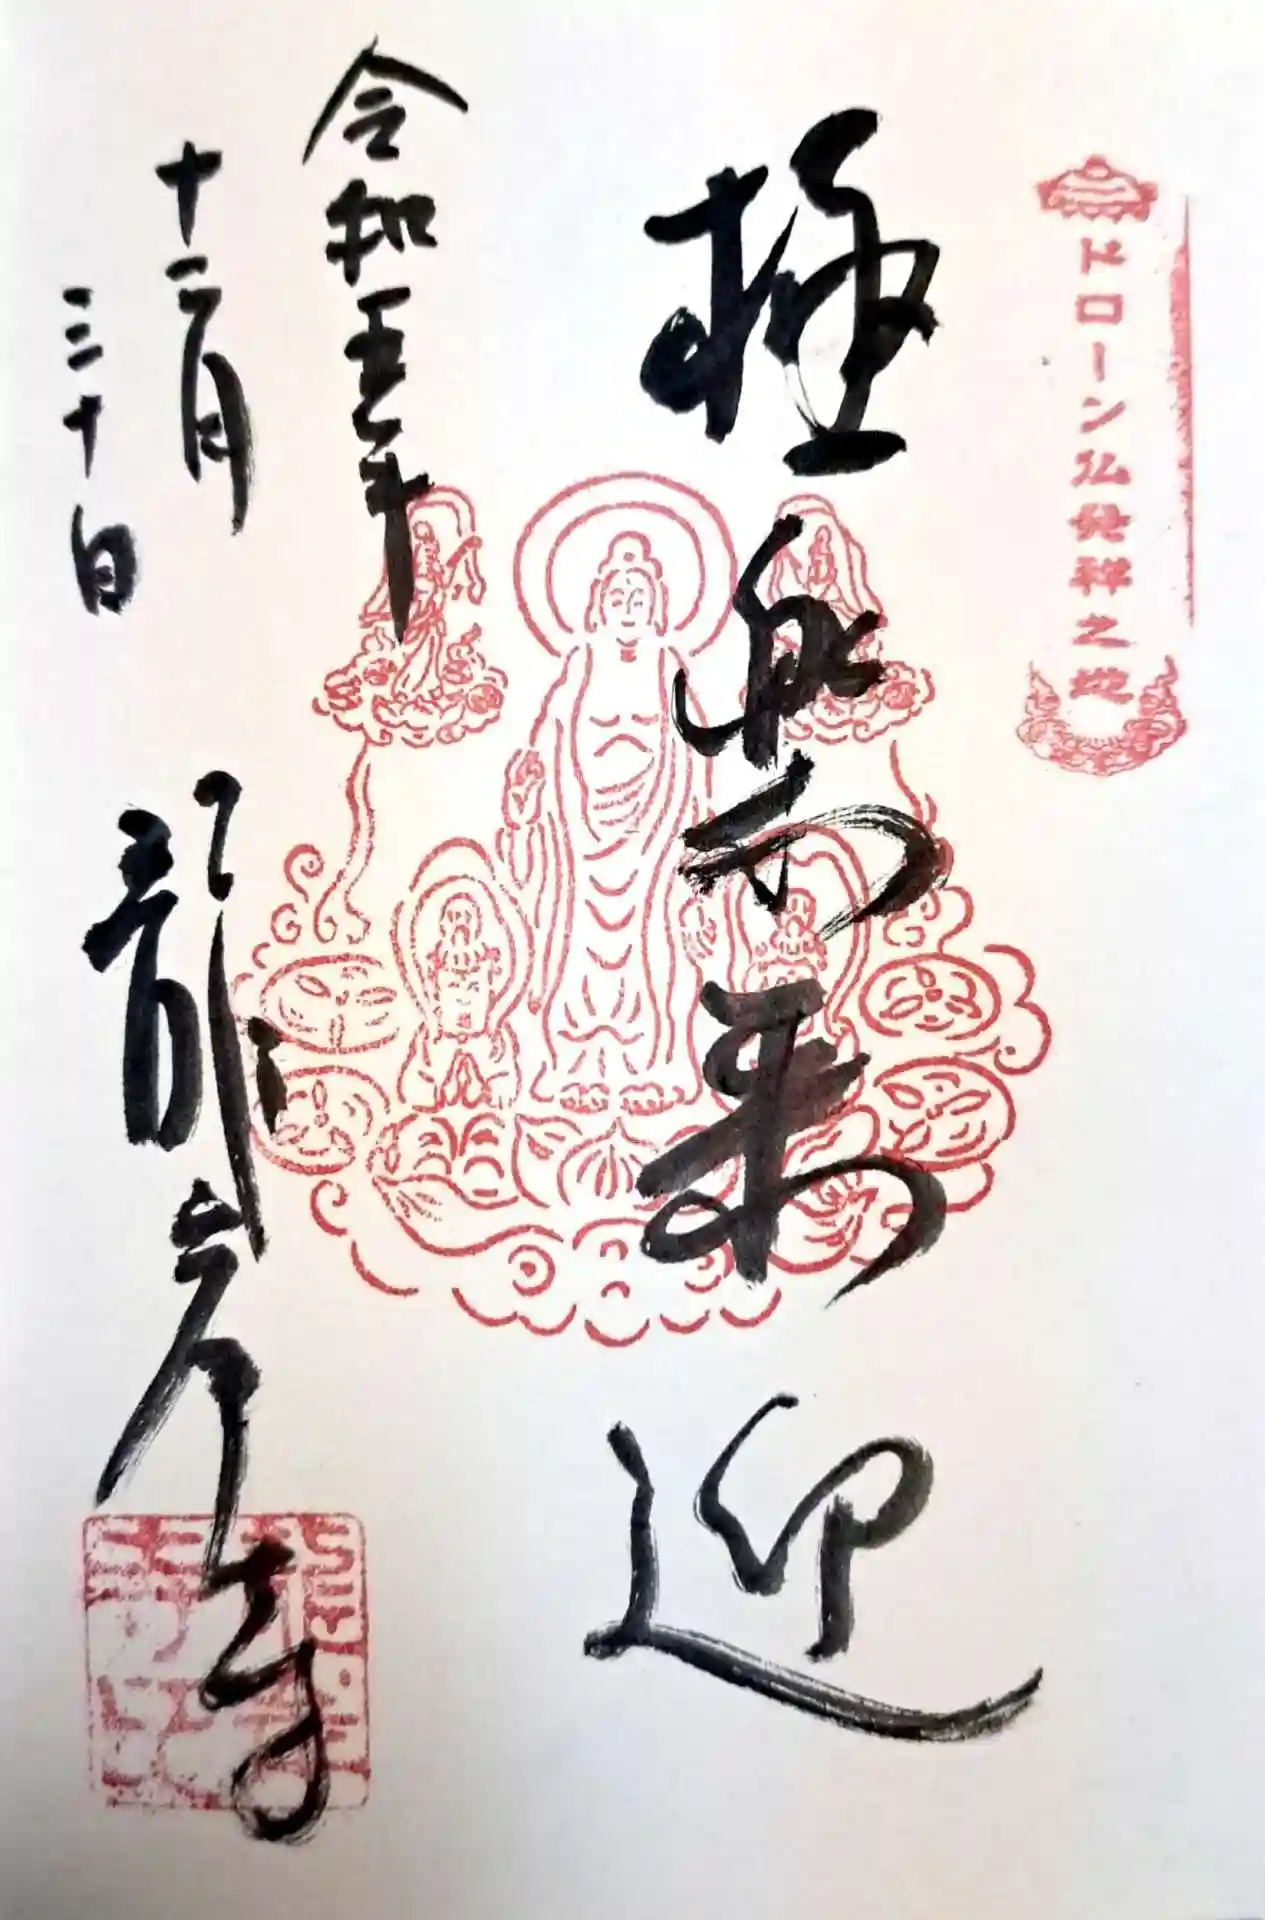 ドローン仏発祥之地
極楽来迎
令和五年
十二月
三十日
龍岸寺